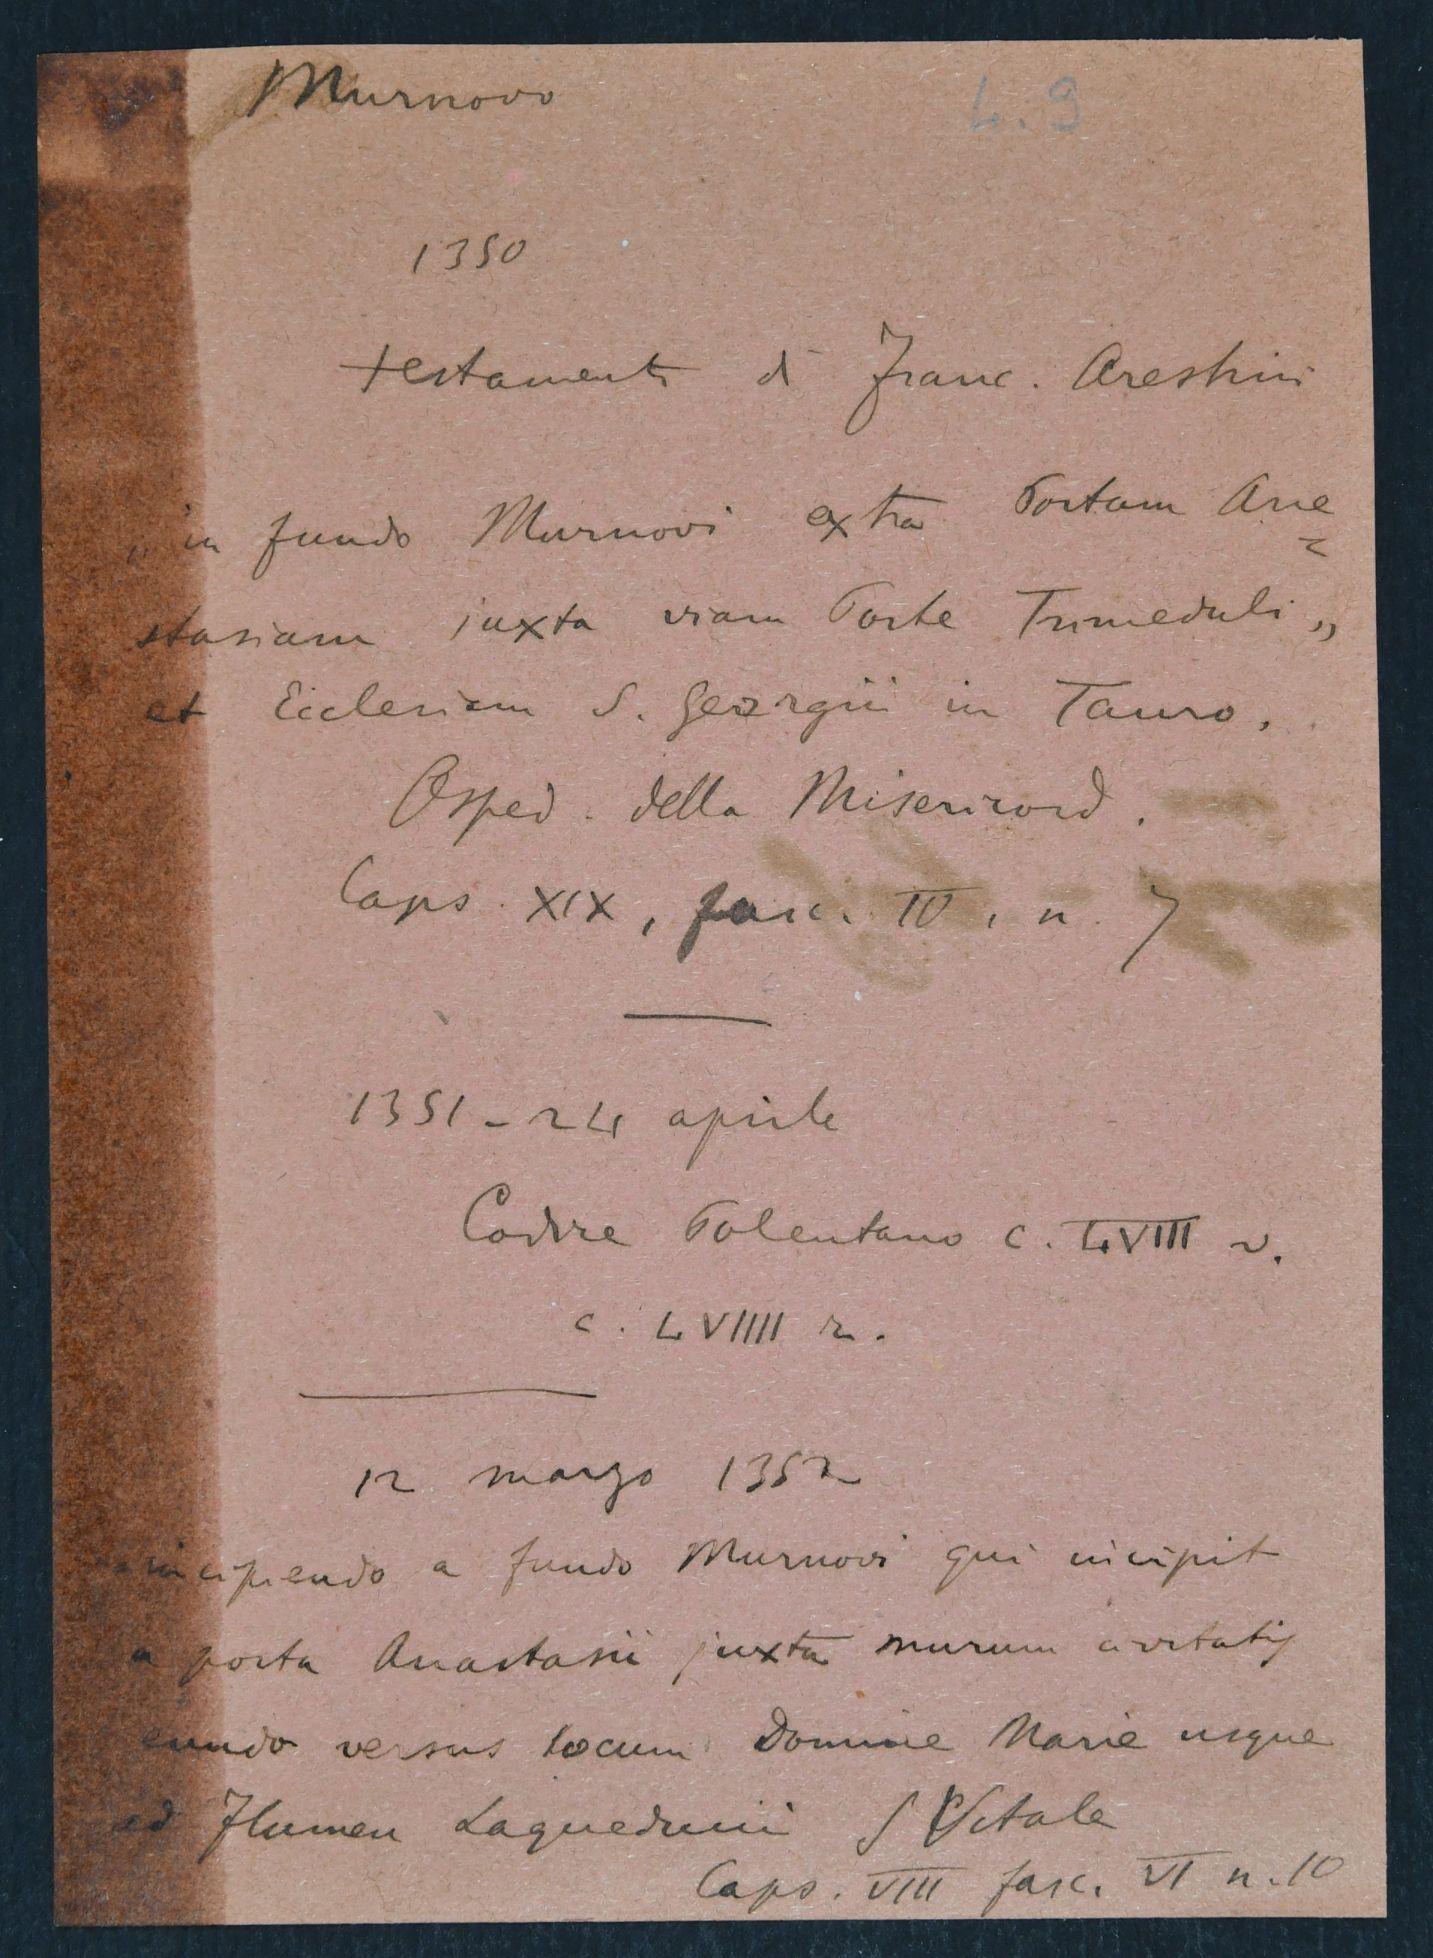 Murnovo
4.9
1350
testamento di Franc. Arestini
„ in fundo Murnovi extra Portam Ane=
stasiam juxta viam Porte Trimeduli „
et Ecclesiam S. Georgii in Tauro.
Osped. della Misericord.
Caps. XIX, fasc. IV, n. 7
1351 - 24 aprile
Codice Polentano c. LVIII v.
c. LVIIII r.
12 marzo 1352
incipiendo a fundo Murnovi qui incipit
a porta Anastasii juxta murum civitatis
eundo versus locum Domine Marie usque
ad Flumen Laqueducii S Vitale
Caps. VIII fasc. VI n. 10